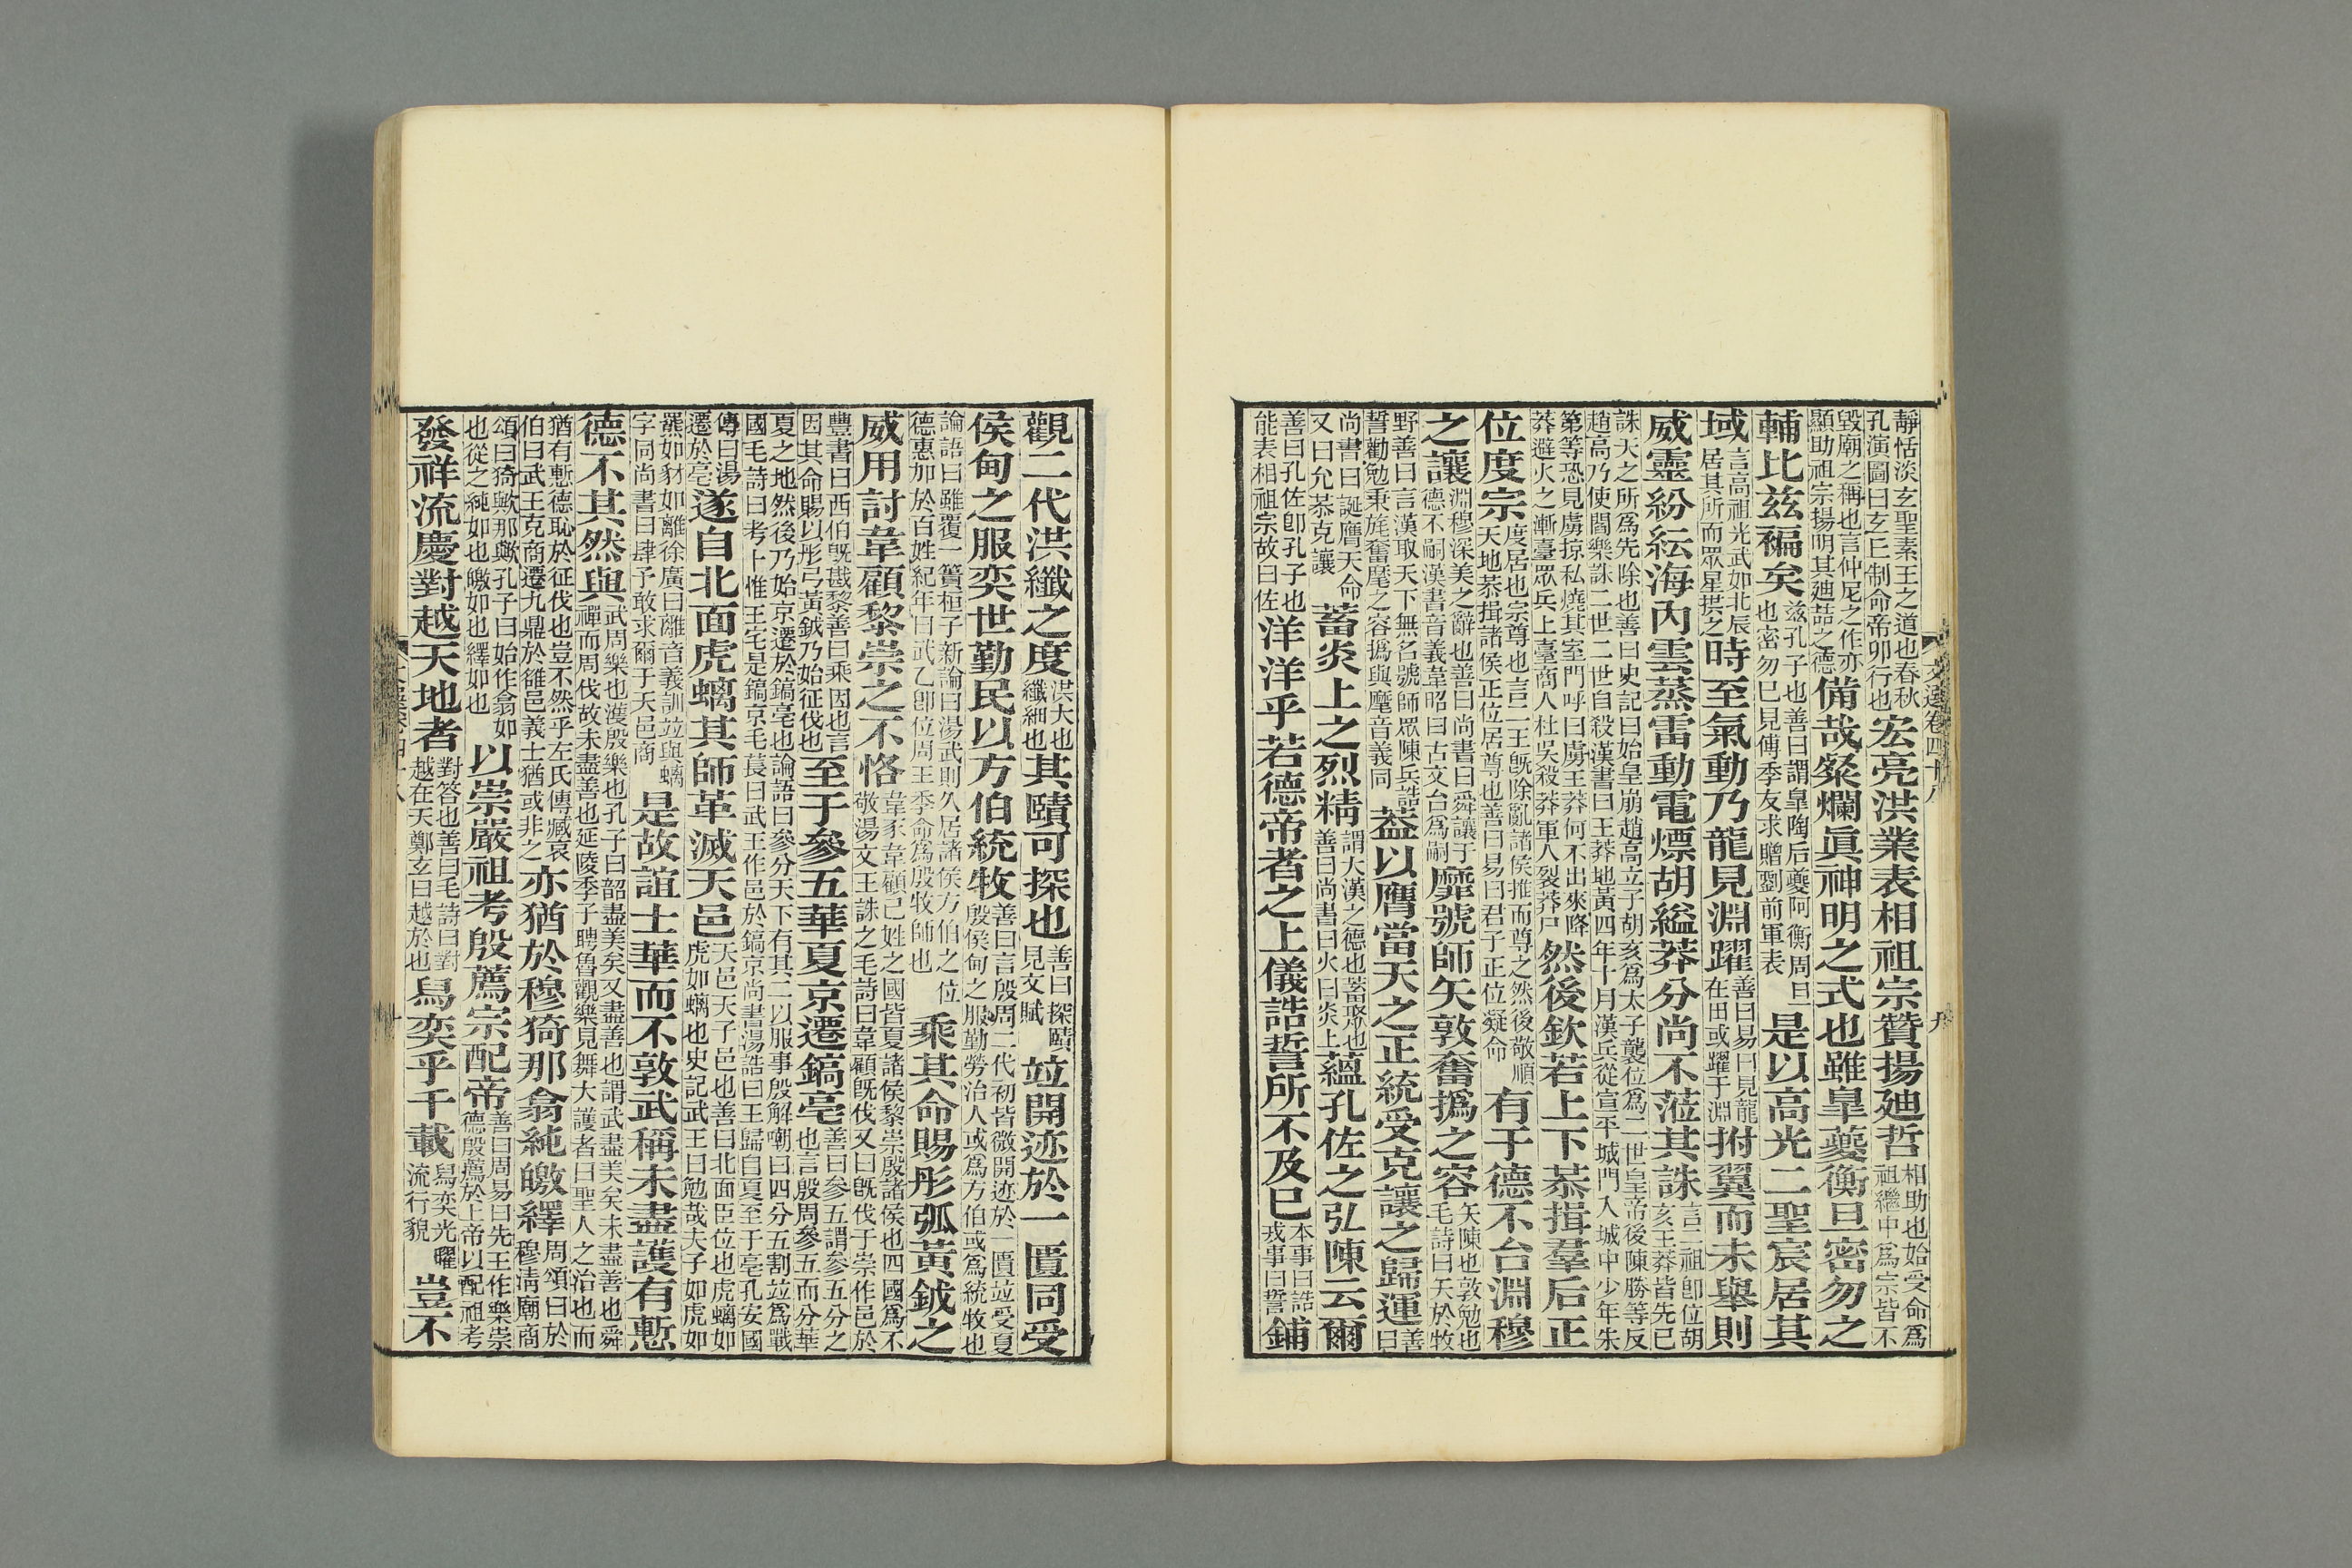 靜恬淡玄聖素王之道也春秋
孔演圖曰玄丘制命帝卯行也
宏亮洪業表相祖宗贊揚廸哲
相助也始受命爲
祖繼中爲宗皆不
毀廟之稱也言仲尼之作亦
顯助祖宗揚明其廸喆之德
備哉粲爛眞神明之式也雖臯夔衡旦密勿之
輔比茲褊矣
茲孔子也善曰謂皐陶后夔阿衡周旦
也密勿已見傅季友求贈劉前軍表
是以高光二聖宸居其
域
言高祖光武如北辰
居其所而眾星拱之
時至氣動乃龍見淵躍
善曰易曰見龍
在田或躍于淵
拊翼而未舉則
威靈紛紜海內雲蒸雷動電熛胡縊莽分尚不蒞其誅
言二祖卽位胡
亥王莽皆先已
誅天之所爲先除也善曰史記曰始皇崩趙高立子胡亥爲太子襲位爲二世皇帝後陳勝等反
趙高乃使閻樂誅二世二世自殺漢書曰王莽地黃四年十月漢兵從宣平城門入城中少年朱
第等恐見虜掠私燒其室門呼曰虜王莽何不出來降
莽避火之漸臺眾兵上臺商人杜吳殺莽軍人裂莽尸
然後欽若上下恭揖羣后正
位度宗
度居也宗尊也言二王旣除亂諸侯推而尊之然後敬順
天地恭揖諸侯正位居尊也善曰易曰君子正位凝命
有于德不台淵穆
之讓
淵穆深美之辭也善曰尚書曰舜讓于
德不嗣漢書音義韋昭曰古文台爲嗣
靡號師矢敦奮撝之容
矢陳也敦勉也
毛詩曰矢於牧
野善曰言漢取天下無名號師眾陳兵誥
誓勸勉秉旄奮麾之容撝與麾音義同
葢以膺當天之正統受克讓之歸運
善
曰
尚書曰誕膺天命
又曰允恭克讓
蓄炎上之烈精
謂大漢之德也蓄聚也
善曰尚書曰火曰炎上
蘊孔佐之弘陳云爾
善曰孔佐卽孔子也
能表相祖宗故曰佐
洋洋乎若德帝者之上儀誥誓所不及已
本事曰誥
戎事曰誓
鋪
觀二代洪纖之度
洪大也
纖細也
其賾可探也
善曰探賾
見文賦
竝開迹於一匱同受
侯甸之服奕世勤民以方伯統牧
善曰言殷周二代初皆微開迹於一匱竝受夏
殷侯甸之服勤勞治人或爲方伯或爲統牧也
論語曰雖覆一簣桓子新論曰湯武則久居諸侯方伯之位
德惠加於百姓紀年曰武乙卽位周王季命爲殷牧師也
乘其命賜彤弧黃鉞之
威用討韋顧黎崇之不恪
韋豕韋顧己姓之國皆夏諸侯黎崇殷諸侯也四國爲不
敬湯文王誅之毛詩曰韋顧旣伐又曰旣伐于崇作邑於
豐書曰西伯旣戡黎善曰乘因也言
因其命賜以彤弓黃鉞乃始征伐也
至于參五華夏京遷鎬亳
善曰參五謂參五分之
也言殷周參五而分華
夏之地然後乃始京遷於鎬亳也論語曰參分天下有其二以服事殷解嘲曰四分五割竝爲戰
國毛詩曰考卜惟王宅是鎬京毛萇曰武王作邑於鎬京尚書湯誥曰王歸自夏至于亳孔安國
傳曰湯
遷於亳
遂自北面虎螭其師革滅天邑
天邑天子邑也善曰北面臣位也虎螭如
虎如螭也史記武王曰勉哉夫子如虎如
羆如豺如離徐廣曰離音義訓竝與螭
字同尚書曰肆予敢求爾于天邑商
是故誼士華而不敦武稱未盡護有慙
德不其然與
武周樂也濩殷樂也孔子曰韶盡美矣又盡善也謂武盡美矣未盡善也舜
禪而周伐故未盡善也延陵季子聘魯觀樂見舞大護者曰聖人之治也而
猶有慙德恥於征伐也豈不然乎左氏傳臧哀
伯曰武王克商遷九鼎於雒邑義士猶或非之
亦猶於穆猗那翕純皦繹
周頌曰於
穆淸廟商
頌曰猗歟那歟孔子曰始作翕如
也從之純如也皦如也繹如也
以崇嚴祖考殷薦宗配帝
善曰周易曰先王作樂崇
德殷薦於上帝以配祖考
發祥流慶對越天地者
對答也善曰毛詩曰對
越在天鄭玄曰越於也
舄奕乎千載
舄奕光曜
流行貌
豈不